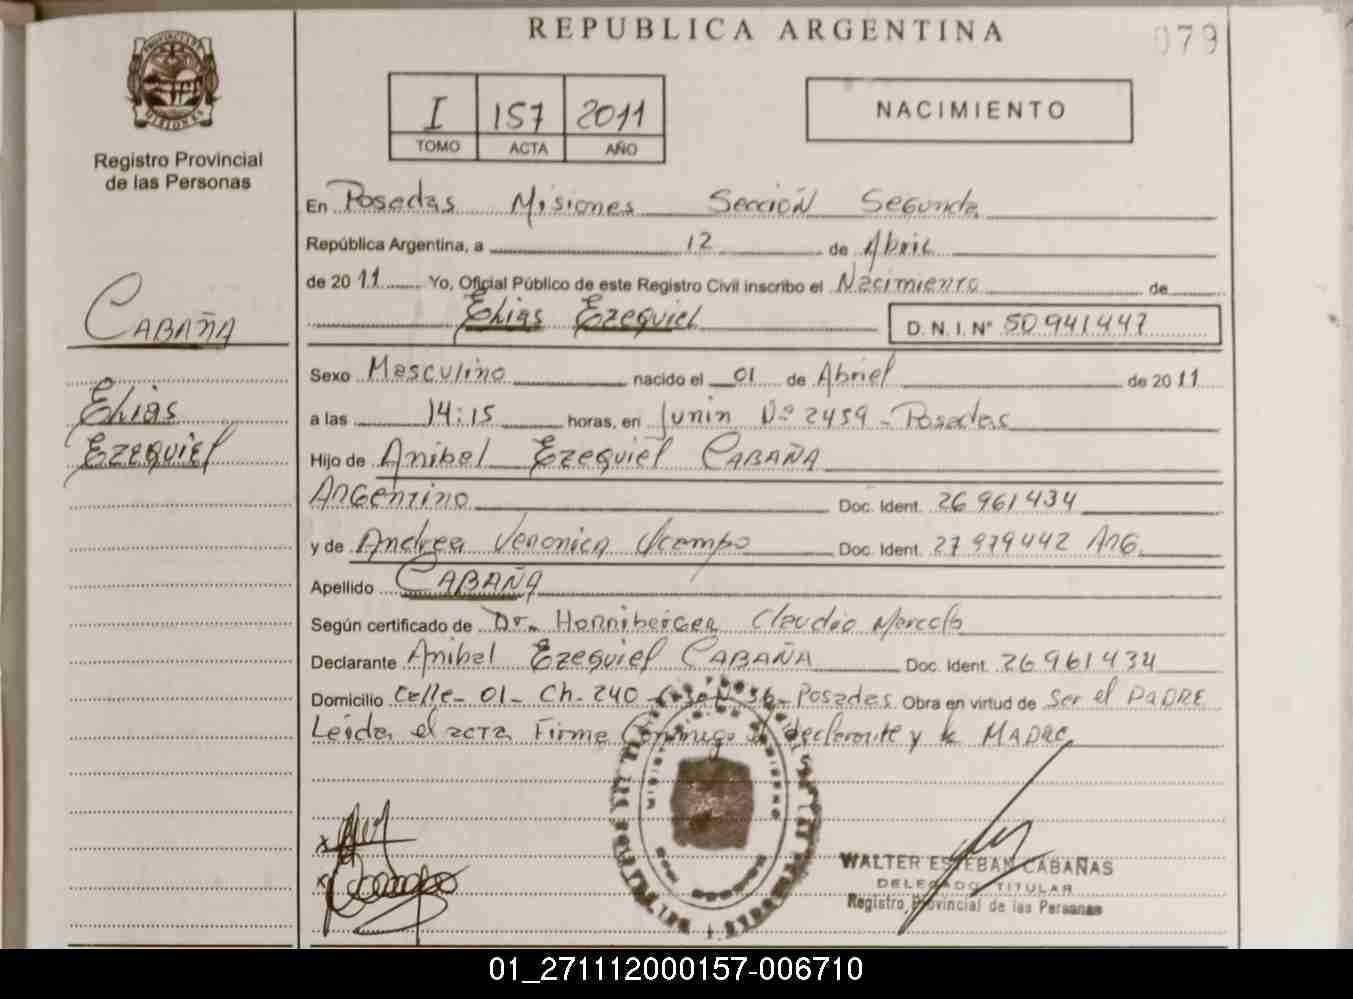 REPUBLICA ARGENTINA
079
I 157 2011
TOMO ACTA AÑO
NACIMIENTO
Registro Provincial
de las Personas
En Posadas Misiones Sección Segunda
República Argentina, a 12 de Abril
de 2011 Yo, Oficial Público de este Registro Civil inscribo el Nacimiento de
Elias Ezequiel D.N.I. N° 50941447
CABAÑA
Elias
Ezequiel
Sexo Masculino nacido el 01 de Abriel de 2011
a las 14:15 horas, en Junin Nº 2459 - Posadas
Hijo de Anibal Ezequiel CABAÑA
Argentino Doc. Ident. 26961434
y de Andrea Veronica Ocampo Doc. Ident. 27979442 Arg.
Apellido CABAÑA
Según certificado de Dr. Honniberger Claudio Marcelo
Declarante Anibal Ezequiel CABAÑA Doc. Ident. 26961434
Domicilio Calle - 01 - Ch. 240 - Casa Nº 36 - Posadas Obra en virtud de Ser el PADRE
Leida el acta Firma Conmigo el declarante y la MADRE
Ocampo
WALTER ESTEBAN CABAÑAS
DELEGADO TITULAR
Registro Provincial de las Personas
01_271112000157-006710